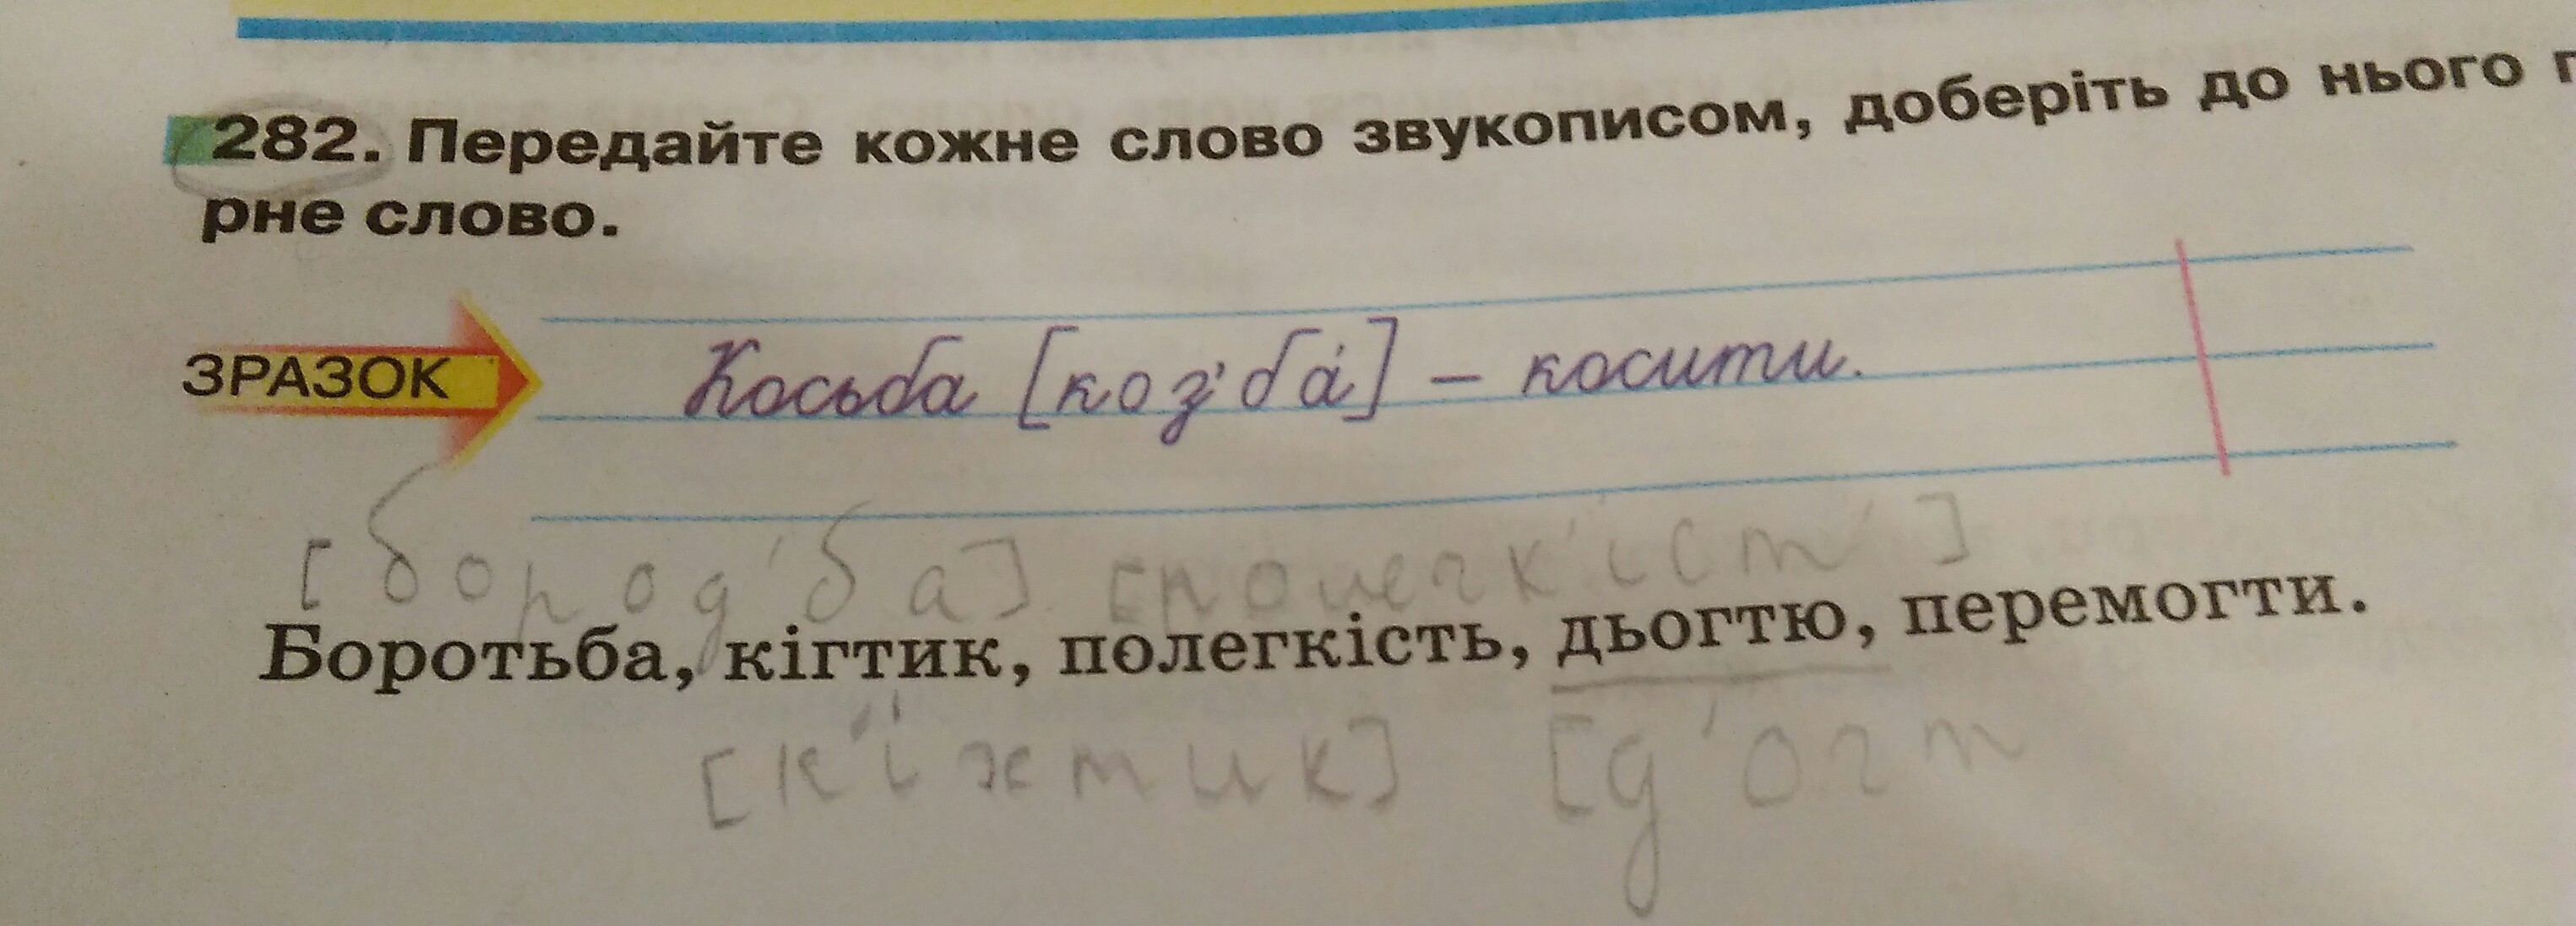 282. Передайте кожне слово звукописом, доберіть до нього п
рне слово.
ЗРАЗОК
Косьба [коз'ба́] – косити.
[бород'ба] [полегк'іст']
Боротьба, кігтик, полегкість, дьогтю, перемогти.
[к'іхтик] [д'огт